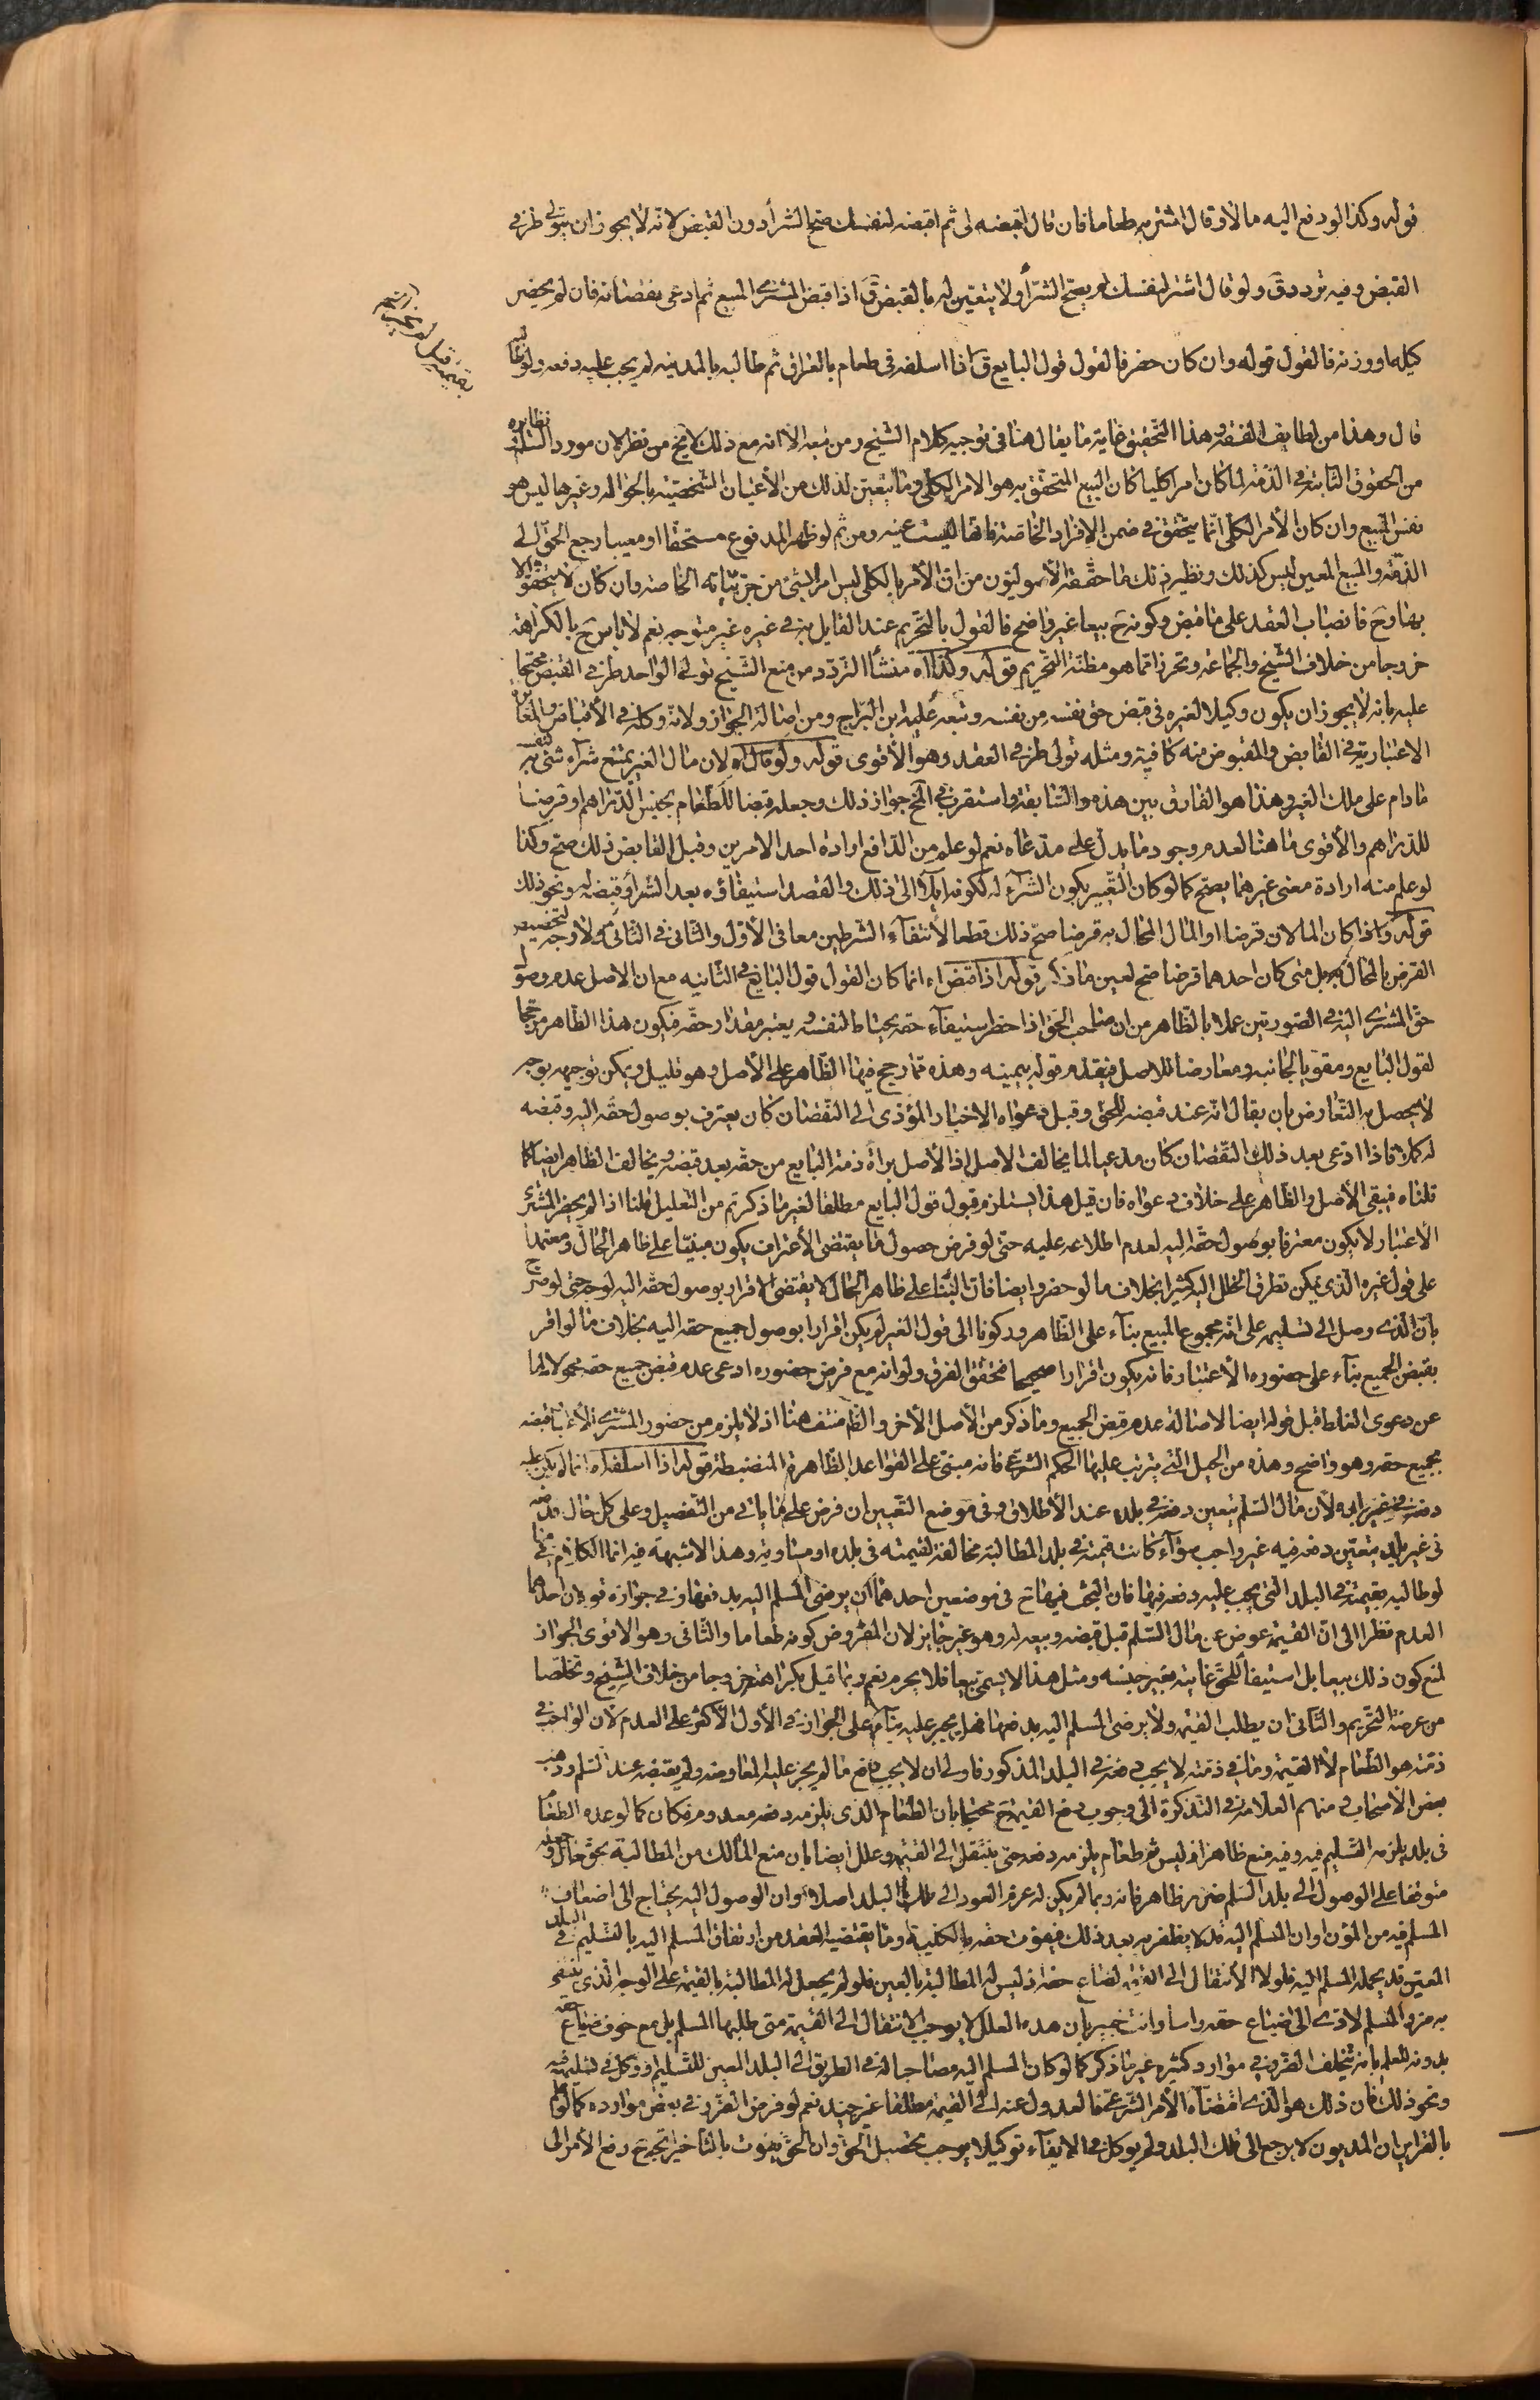 قوله وكذا لو دفع اليه مالا وقال اشتر به طعاما فان قال اقبضه لى ثم اقبضه لنفسك صح الشرأ دون القبض لانه لا يجوز ان يتولى طرفى
القبض وفيه تردد ق ولو قال اشتر لنفسك لم يصح الشرأ ولا يتعين له بالقبض ق اذا قبض المشترى المبيع ثم ادعى نقصانه فان لم يحضر
كيله او وزنه فالقول قوله وان كان حضر فالقول قول البايع ق اذا اسلفه فى طعام بالعراق ثم طالبه بالمدينه لم يجب عليه دفعه ولو طالبه
بقيمته قيل لم يجز
قال وهذا من لطايف الفقه هذا التحقيق غاية ما يقال هنا فى توجيه كلام الشيخ ومن تبعه الا انه مع ذلك لا يخ من نظر لان مورد السلم نظايره
من الحقوق الثابتة فى الذمة لما كان امرا كليا كان البيع المتحقق به هو الامر الكلى وما يتعين لذلك من الأعيان الشخصية بالحواله وغيرها ليس هو
نفس المبيع وان كان الأمر الكلى انما يتحقق فى ضمن الافراد الخاصة فانها ليست عينه ومن ثم لو ظهر المدفوع مستحقا او معيبا رجع الحق الى
الذمة والمبيع المعين ليس كذلك ونظير ذلك ما حققه الأصوليون من ان الأمر بالكلى ليس امرا بشئ من جزئياته الخاصه وان كان لا يتحقق الا
بها وح فانصباب العقد على ما قبض وكونه ح بيعا غير واضح فالقول بالتحريم عند القايل به فى غيره غير متوجه نعم لا باس ح بالكراهة
خروجا من خلاف الشيخ والجماعة وتحرزا مما هو مظنة التحريم قوله وكذا آه منشأ التردد من منع الشيخ تولى الواحد طرفى القبض محتجا
عليه بانه لا يجوز ان يكون وكيلا لغيره فى قبض حق نفسه من نفسه وتبعه عليه ابن البراج ومن اصالة الجواز ولانه وكله فى الأقباض والمغايرة
الاعتبارية فى القابض والمقبوض منه كافية ومثله تولى طرفى العقد وهو الأقوى قوله ولو قال آه لان مال الغير يمتنع شرآء شئ به لنفسه
ما دام على ملك الغير وهذا هو الفارق بين هذه والسابقة واستقرب فى المخ جواز ذلك وجعله قبضا للطعام بجنس الدراهم او قرضا
للدراهم والأقوى ما هنا لعدم وجود ما يدل على مدعاه نعم لو علم من الدافع ارادة احد الامرين وقبل القابض ذلك صح وكذا
لو علم منه ارادة معنى غيرهما يصح كما لو كان التعبير بكون الشرآء له لكونه آيلا الى ذلك والقصد استيفاؤه بعد الشرأ وقبضه له ونحو ذلك
قوله واذا كان المالان قرضا او المال المحال به قرضا صح ذلك قطعا لأنتفآء الشرطين معا فى الأول والثانى فى الثانى ولا وجه لتخصيص
القرض بالمحال به بل متى كان احدهما قرضا صح لعين ما ذكر قوله اذا قبض آه انما كان القول قول البايع فى الثانيه مع ان الاصل عدم وصول
حق المشترى اليه فى الصورتين عملا بالظاهر من ان صاحب الحق اذا حضر استيفآء حقه يحتاط لنفسه ويعتبر مقدار حقه فيكون هذا الظاهر مرجحا
لقول البايع ومقويا لجانبه ومعارضا للاصل فيقدم قوله بيمينه وهذه مما رجح فيها الظاهر على الأصل وهو قليل ويمكن توجيهه بوجه
لا يحصل به التعارض بان يقال انه عند قبضه للحق وقبل دعواه الاختبار المؤدى الى النقصان كان يعترف بوصول حقه اليه وقبضه
له كملا فاذا ادعى بعد ذلك النقصان كان مدعيا لما يخالف الاصل اذ الأصل برأة ذمة البايع من حقه بعد قبضه ويخالف الظاهر ايضا كما
قلناه فيبقى الأصل والظاهر على خلاف دعواه فان قيل هذا يستلزم قبول قول البايع مطلقا لغير ما ذكرتم من التعليل قلنا اذا لم يحضر المشترى
الأعتبار لا يكون معترفا بوصول حقه اليه لعدم اطلاعه عليه حتى لو فرض حصول ما يقتضى الأعتراف يكون مبنيا على ظاهر الحال ومعتمدا
على قول غيره الذى يمكن تطرق الخلل اليه كثيرا بخلاف ما لو حضر وايضا فان البنا على ظاهر الحال لا يقتضى الاقرار بوصول حقه اليه لوجه حتى لو صرح
بان الذى وصل الى تسليمه على انه مجموع المبيع بنآء على الظاهر وركونا الى قول الغير لم يكن اقرارا بوصول جميع حقه اليه بخلاف ما لو اقر
بقبض الجميع بنآء على حضوره الأعتبار فانه يكون اقرارا صحيحا فتحقق الفرق ولو انه مع فرض حضوره ادعى عدم قبض جميع حقه محولا لها
عن دعوى الغلط قبل قوله ايضا لاصالة عدم قبض الجميع وما ذكر من الأصل الأخر والظ منتف هنا اذ لا يلزم من حضور المشترى الأعتبار قبضه
لجميع حقه وهو واضح وهذه من الحيل التى يترتب عليها الحكم الشرعى فانه مبنى على القواعد الظاهرة المنضبطة قوله اذا اسلفه آه انما لم يكن عليه
دفعه فى غير بلده لأن مال السلم يتعين دفعه فى بلده عند الأطلاق وفى موضع التعيين ان فرض على ما ياتى من التفصيل وعلى كل حال فدفعه
فى غير بلد يتعين دفعه فيه غير واجب سوآء كانت قيمته فى بلد المطالبة مخالفة لقيمته فى بلده او مساوية وهذا لا شبهة فيه انما الكلام فيما
لو طالبه بقيمته فى البلد التى يجب عليه دفعه فيها فان البحث فيها ح فى موضعين احدهما ان يرضى المسلم اليه بدفعها وفى جوازه قولان احدهما
العدم نظرا الى ان القيمة عوض عن مال السلم قبل قبضه وبيعه له وهو غير جايز لان المفروض كونه طعاما والثانى وهو الاقوى الجواز
لمنع كون ذلك بيعا بل استيفآء للحق غايته بغير جنسه ومثل هذا لا يسمى بيعا فلا يحرم نعم ربما قيل بكراهته خروجا من خلاف الشيخ وتخلصا
من عرضة التحريم والثانى ان يطلب القيمة ولا يرضى المسلم اليه بدفعها فهل يجبر عليه بنآء على الجواز فى الأول الأكثر على العدم لأن الواجب فى
ذمته هو الطعام لا القيمة وما فى ذمته لا يجب دفعه فى البلد المذكور فاولى ان لا يجب دفع ما لم يجر عليه المعاوضه ولم يقتضه عند السلم وذهب
بعض الأصحاب منهم العلامة فى التذكرة الى وجوب دفع القيمة ح محتجا بان الطعام الذى يلزمه دفعه معدوم فكان كما لو عدم الطعام
فى بلد يلزمه التسليم فيه وفيه منع ظاهر اذ ليس ثم طعام يلزمه دفعه حتى ينتقل الى القيمة وعلل ايضا بان منع المالك من المطالبة بحق حال وجعله
متوقفا على الوصول الى بلد السلم ضرر ظاهر فانه ربما لم يكن له عزم العود الى تلك البلد اصلا وان الوصول اليه يحتاج الى اضعاف
المسلم فيه من المؤن وان المسلم اليه قد لا يظفر به بعد ذلك فيفوت حقه بالكلية وما يقتضيه العقد من ارتفاق المسلم اليه بالتسليم فى البلد
المعين قد يحمله المسلم اليه فلولا الأنتقال الى القيمة لضاع حقه اذ ليس له المطالبة بالعين فلو لم يجعل له المطالبة بالقيمة على الوجه الذى ينتفى
به ضرر المسلم لادى الى ضياع حقه راسا وانت خبير بأن هذه العلل لا يوجب الانتقال الى القيمة متى طلبها المسلم بل مع خوف ضياع حقه
بدونه للعلم بانه يتخلف الضرر فى موارد كثيره غير ما ذكر كما لو كان المسلم اليه مصاحبا له فى الطريق الى البلد المعين للتسليم او وكل فى تسليمه فيه
ونحو ذلك فان ذلك هو الذى اقتضاه الأمر الشرعى فالعدول عنه الى القيمة مطلقا غير جيد نعم لو فرض الضرر فى بعض موارده كما لو علم
بالقراين ان المديون لا يرجع الى تلك البلد ولم يوكل فى الايفآء توكيلا يوجب تحصيل الحق وان الحق يفوت بالتأخير اتجه ح رفع الأمر الى